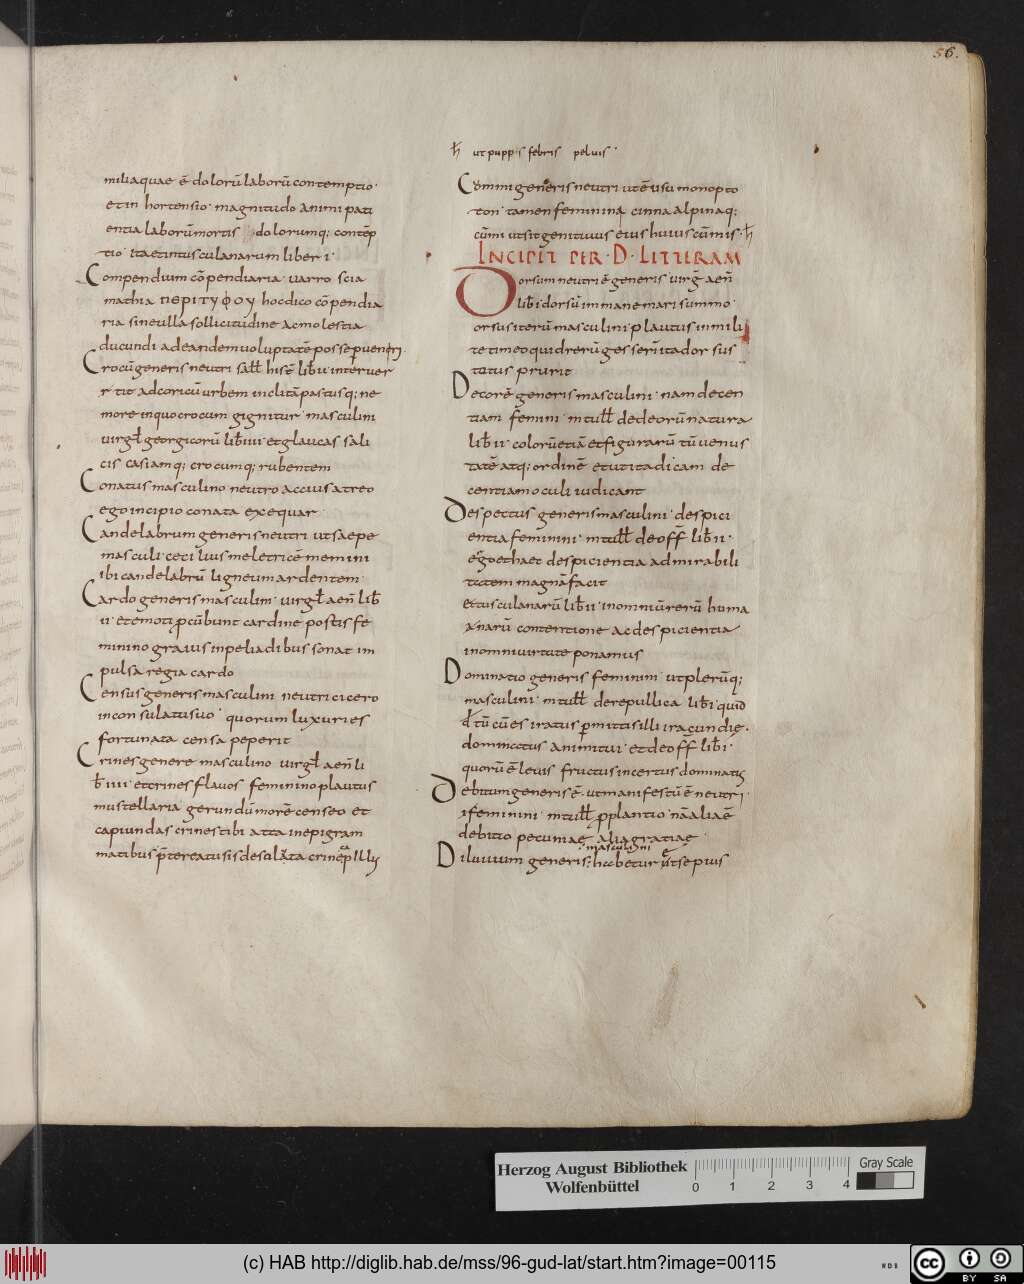 56.
miliaquae ē dolorū laborū contemptio·
et in hortensio· magnitudo animi pati
entia laborū mortis dolorumq; contēp
tio· ita et in tusculanarum liber i·
Compendium cōpendiaria· varro scia
mathia ΠΕΡΙΤΥΦΟΥ hoc dico cōpendia
ria sine ulla sollicitudine ac molestia
ducundi ad eandem voluptatē posse pueneri
Crocū generis neutri sall his lib ii interver
r tit ad coricū urbem inclitā pastusq; ne
more in quo crocum gignitur· masculini
virgl georgicorū lib iiii· et glaucas sali
cis casiamq; crocumq; rubentem
Conatus masculino neutro accius atreo
ego incipio conata exequar·
Candelabrum generis neutri ut saepe
masculi· cecilius meletricē memini
ibi candelabrū ligneum ardentem·
Cardo generis masculini· virgl aen lib
ii· et emoti pcūbunt cardine postis fe
minino graius in peliadibus sonat im
pulsa regia cardo
Census generis masculini neutri cicero
in consulatu suo· quorum luxuries
fortunata censa peperit
Crines genere masculino virgl aen li
b iiii· et crines flavos· feminino plautus
mustellaria· gerundū morē censeo et
capiundas crines tibi atta in epigram
matibus pterea tu sis de solata crine p illis
ħ ut puppis febris pelvis·
Cummi generis neutri ut ē usu monopto
ton· tamen feminina cinna alpinaq;
cūmi ut sit genitivus eius huius cūmis· ħ
INCIPIT PER· D· LITTERAM
Dorsum neutri ē generis virg aen
lib i· dorsū inmane mari summo·
orsus iterū masculini plautus in mili
te timeo quid rerū gesserit ita dorsus
totus prurit
Decor ē generis masculini· nam decen
tiam femini· m tull de deorū natura
lib ii· colorū etiā et figurarū tū venus
tatē atq; ordinē et ut ita dicam de
centiam oculi iudicant
Despectus generis masculini· despici
entia feminini· m tull de off lib ii·
ergo et haec despicientia admirabili
tatem magnā facit
et tusculanarū lib ii· in omniū rerū huma
narū contentione ac despicientia
in omni virtute ponamus
Dominatio generis feminini· ut plerūq;
masculini· m tull de re pullica lib i· quid
d tū cū es iratus pmittis illi iracundie·
dominatus animi tui· et de off lib i·
quorū ē levis fructus incertus dominatus
Debitum generis ē· ut manifestū ē neutri·
feminini· m tull p plantio· nā alia ē
debitio pecuniae alia gratiae·
masculini
Diluvium generis· habetur ut sepius
Herzog August Bibliothek
Wolfenbüttel
0 1 2 3 4
Gray Scale
(c) HAB http://diglib.hab.de/mss/96-gud-lat/start.htm?image=00115
WDB
cc BY SA